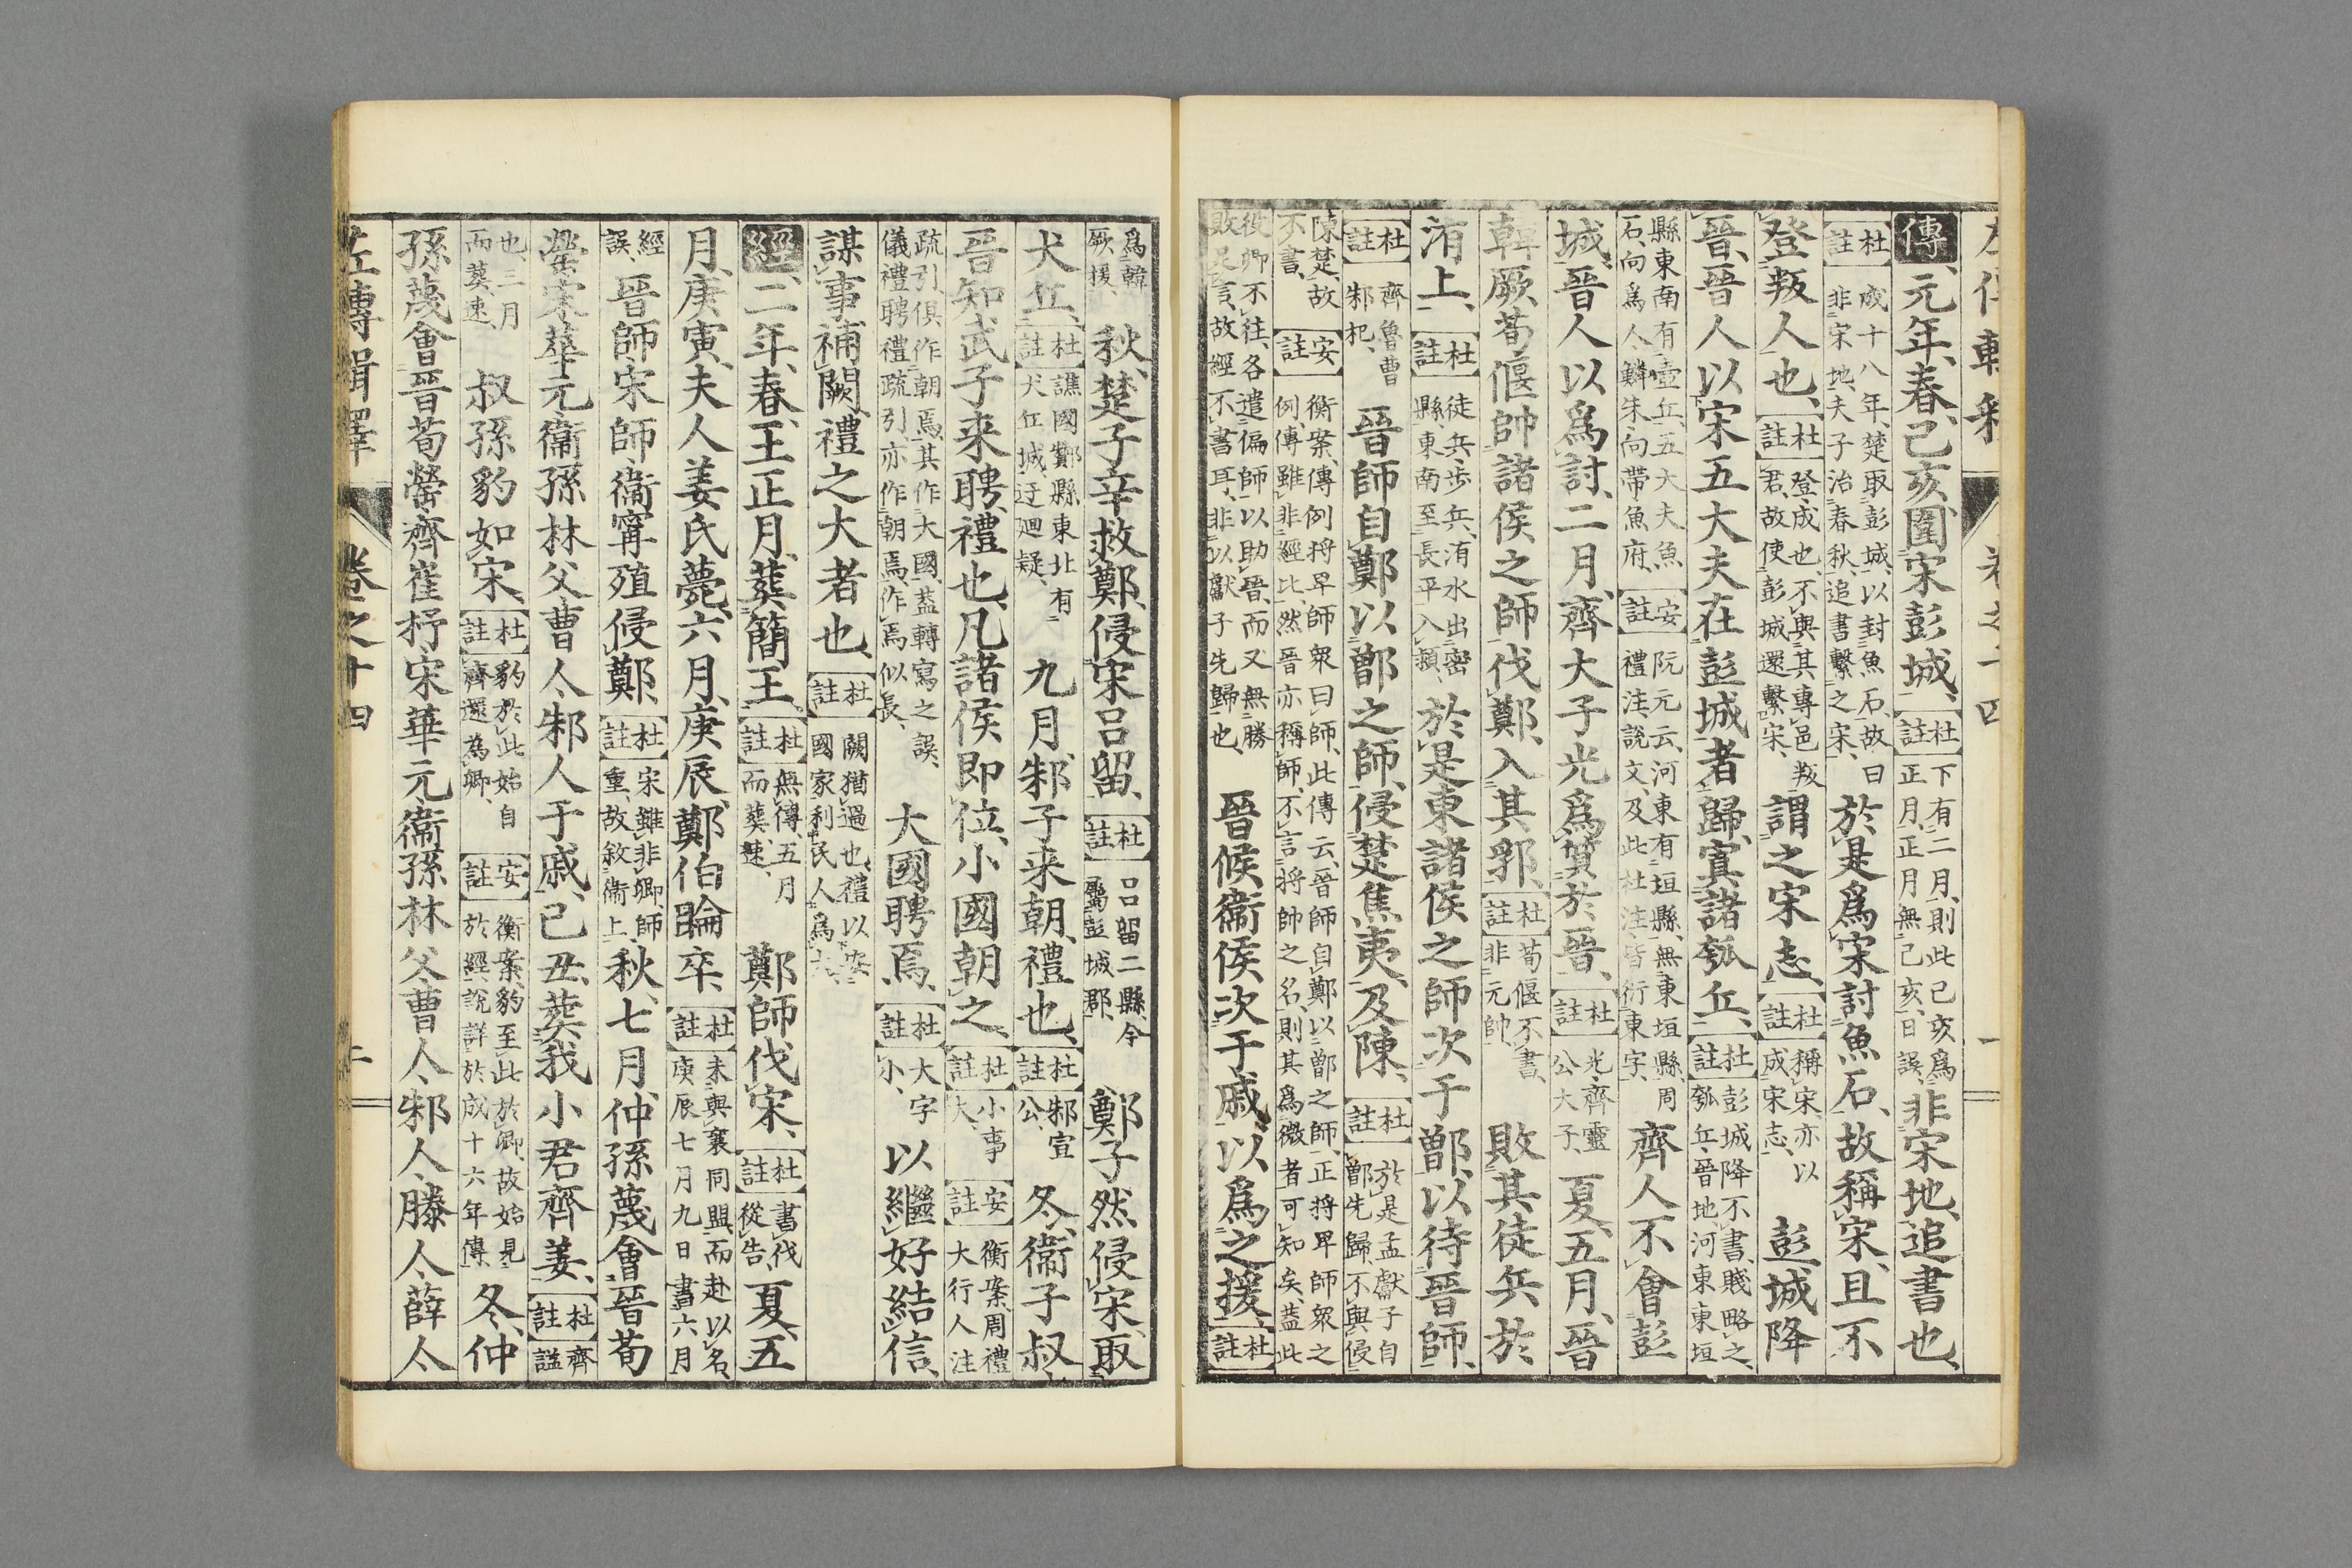 傳元年、春、己亥、圍宋彭城、杜註下有二月、則此己亥爲正月、正月無己亥、日誤、非宋地、追書也、
杜註成十八年、楚取彭城、以封魚石、故曰非宋地、夫子治春秋、追書繫之宋、於是爲宋討魚石、故稱宋、且不
登叛人也、杜註登、成也、不與其專邑叛君、故使彭城還繫宋、謂之宋志、杜註稱宋、亦以成宋志、彭城降
晉、晉人以宋五大夫在彭城者歸、寘諸瓠丘、杜註彭城降不書、賤略之、瓠丘、晉地、河東東垣
縣東南有壺丘、五大夫、魚石、向爲人、鱗朱、向帶、魚府、安註阮元云、河東有垣縣、無東垣縣、周禮注、說文、及此杜注、皆衍東字、齊人不會彭
城、晉人以爲討、二月、齊大子光爲質於晉、杜註光、齊靈公大子、夏、五月、晉
韓厥荀偃帥諸侯之師伐鄭、入其郛、杜註荀偃不書、非元帥、敗其徒兵於
洧上、杜註徒兵、步兵、洧水出密縣東南至長平入潁、於是東諸侯之師次于鄫、以待晉師、
杜註齊魯曹邾杞、晉師自鄭以鄫之師、侵楚焦夷、及陳、杜註於是孟獻子自鄫先歸、不與侵
陳楚、故不書、安註衡案、傳例將卑師衆曰師、此傳云、晉師自鄭以鄫之師、正將卑師衆之例、傳雖非經比、然晉亦稱師、不言將帥之名、則其爲微者可知矣、蓋此
役卿不往、各遣偏師以助晉、而又無勝敗足言、故經不書耳、非以獻子先歸也、晉侯衞侯次于戚、以爲之援、杜註
爲韓厥援、秋、楚子辛救鄭、侵宋呂留、杜註呂留二縣、今屬彭城郡、鄭子然侵宋、取
犬丘、杜註譙國酇縣東北有犬丘城、迂迴疑、九月、邾子來朝、禮也、杜註邾宣公、冬、衞子叔、
晉知武子來聘、禮也、凡諸侯即位、小國朝之、杜註小事大、安註衡案、周禮大行人注
疏引、俱作朝焉、其作大國、蓋轉寫之誤、儀禮聘禮疏引、亦作朝焉、作焉似長、大國聘焉、杜註大字小、以繼好結信、
謀事補闕、禮之大者也、杜註闕猶過也、禮以安國家利民人爲大、
經二年、春、王正月、葬簡王、杜註無傳、五月而葬、速、鄭師伐宋、杜註書伐從告、夏、五
月、庚寅、夫人姜氏薨、六月、庚辰、鄭伯睔卒、杜註未與襄同盟、而赴以名、庚辰七月九日、書六月
經誤、晉師宋師衞甯殖侵鄭、杜註宋雖非卿、師重、故敘衞上、秋、七月、仲孫蔑會晉荀
罃宋華元衞孫林父曹人邾人于戚、己丑、葬我小君齊姜、杜註齊謚
也、三月而葬、速、叔孫豹如宋、杜註豹於此始自齊還爲卿、安註衡案、豹至此於卿、故始見於經、說詳於成十六年傳、冬、仲
孫蔑會晉荀罃齊崔杼宋華元衞孫林父曹人邾人滕人薛人
左傳輯釋 卷之十四